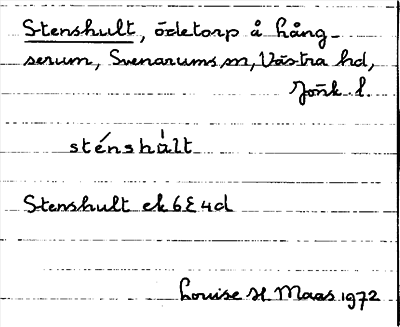 Stenshult, ödetorp å Lång-
serum, Svenarums sn, Västra hd,
Jönk. l.
sténshùlt
Stenshult ek 6E 4d
Louise H. Maas 1972